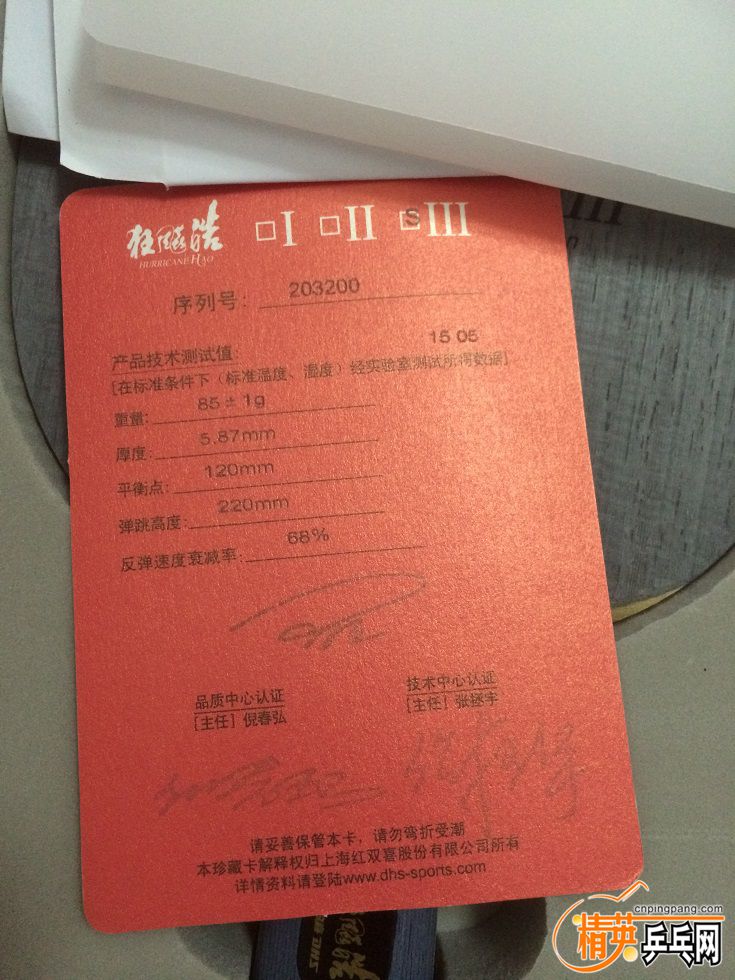 狂飚皓 □I □II □SIII
HURRICANE HAO
序列号: 203200
15 05
产品技术测试值:
[在标准条件下（标准温度、湿度）经实验室测试所得数据]
重量: 85±1g
厚度: 5.87mm
平衡点: 120mm
弹跳高度: 220mm
反弹速度衰减率: 68%
品质中心认证 技术中心认证
[主任] 倪春弘 [主任] 张拯宇
请妥善保管本卡，请勿弯折受潮
本珍藏卡解释权归上海红双喜股份有限公司所有
详情资料请登陆www.dhs-sports.com
III
DHS
cnpingpang.com
精英乒乓网